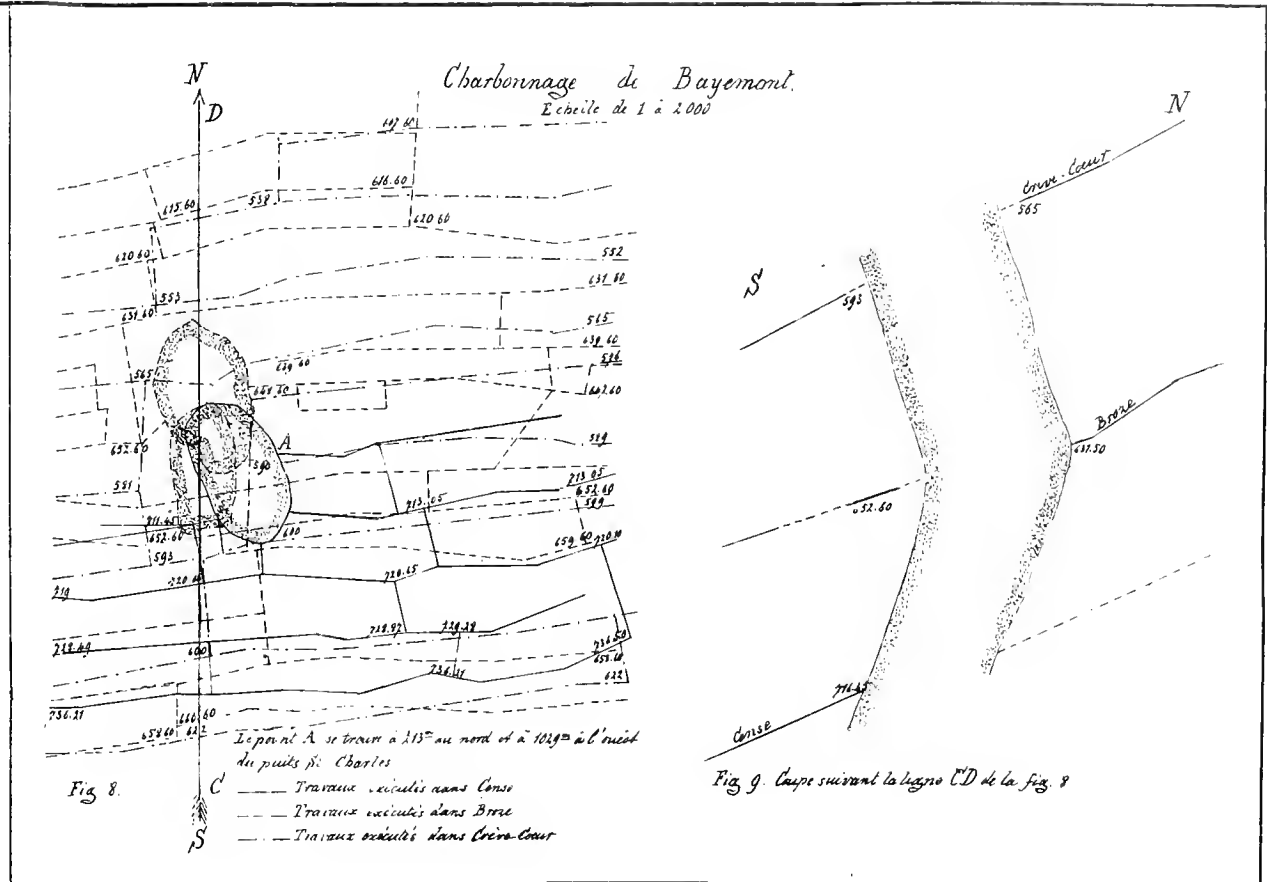 Charbonnage de Bayemont.
Echelle de 1 à 2000
N
D
607.60
616.60
615.60
538
620.60
620.60
552
631.60
553
631.60
565
639.60
639.60
586
565
642.60
A
652.60
589
590
581
713.05
713.05
652.60
599
711.45
652.60
600
659.60
720.10
593
719
720.65
728.49
728.87
729.28
736.50
600
622
736.21
736.21
666.60
658.60
622
Le point A se trouve à 213m au nord et à 1029m à l'ouest
du puits St Charles
Fig 8.
C
S
Travaux exécutés dans Conse
Travaux exécutés dans Broze
Travaux exécutés dans Crève-Cœur
N
Crève-Cœur
565
S
593
Broze
637.50
652.60
716.45
Conse
Fig 9. Coupe suivant la ligne CD de la fig. 8